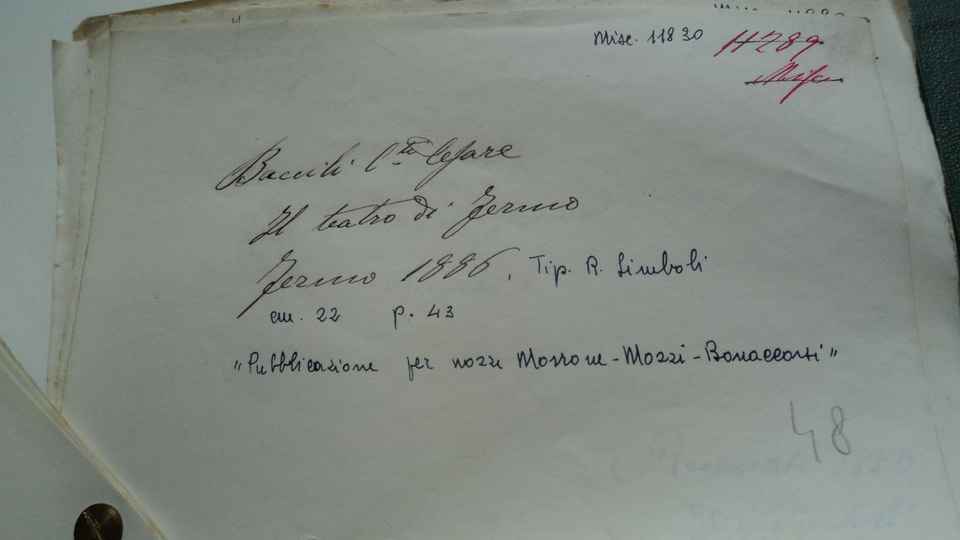 Misc. 11830
H289
Misc.
Baccili C.te Cesare
Il teatro di Fermo
Fermo 1886. Tip. R. Simboli
cm. 22 p. 43
"Pubblicazione per nozze Morrone-Mozzi-Bonaccorsi"
48